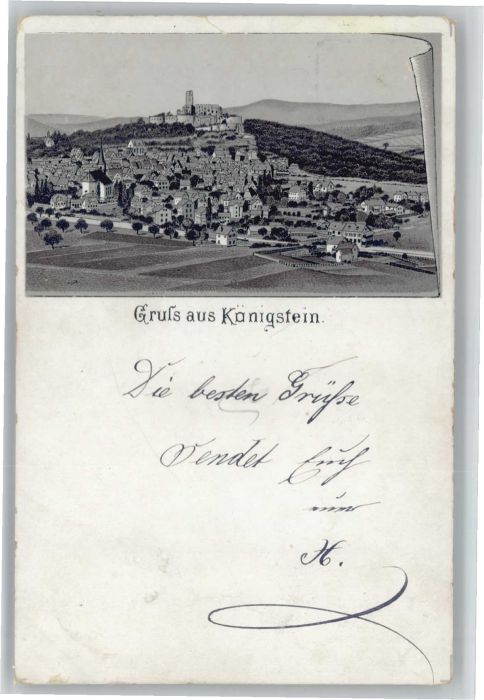 Gruſs aus Königstein.
Die besten Grüße
sendet Euch
H.